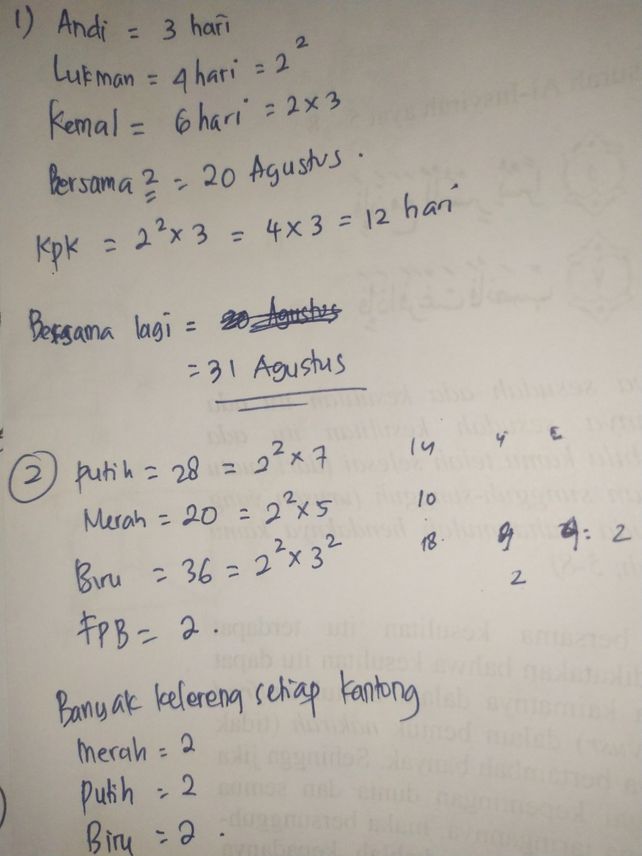 1) Andi = 3 hari
Lukman = 4 hari = 2²
Kemal = 6 hari = 2 x 3
Bersama ² = 20 Agustus.
KpK = 2² x 3 = 4 x 3 = 12 hari
Bersama lagi = 20 Agustus
= 31 Agustus
2 putih = 28 = 2² x 7
14 4
Merah = 20 = 2² x 5
10
Biru = 36 = 2² x 3²
18 9 9: 2
2
FPB = 2.
Banyak kelereng setiap kantong
merah = 2
putih = 2
Biru = 2.